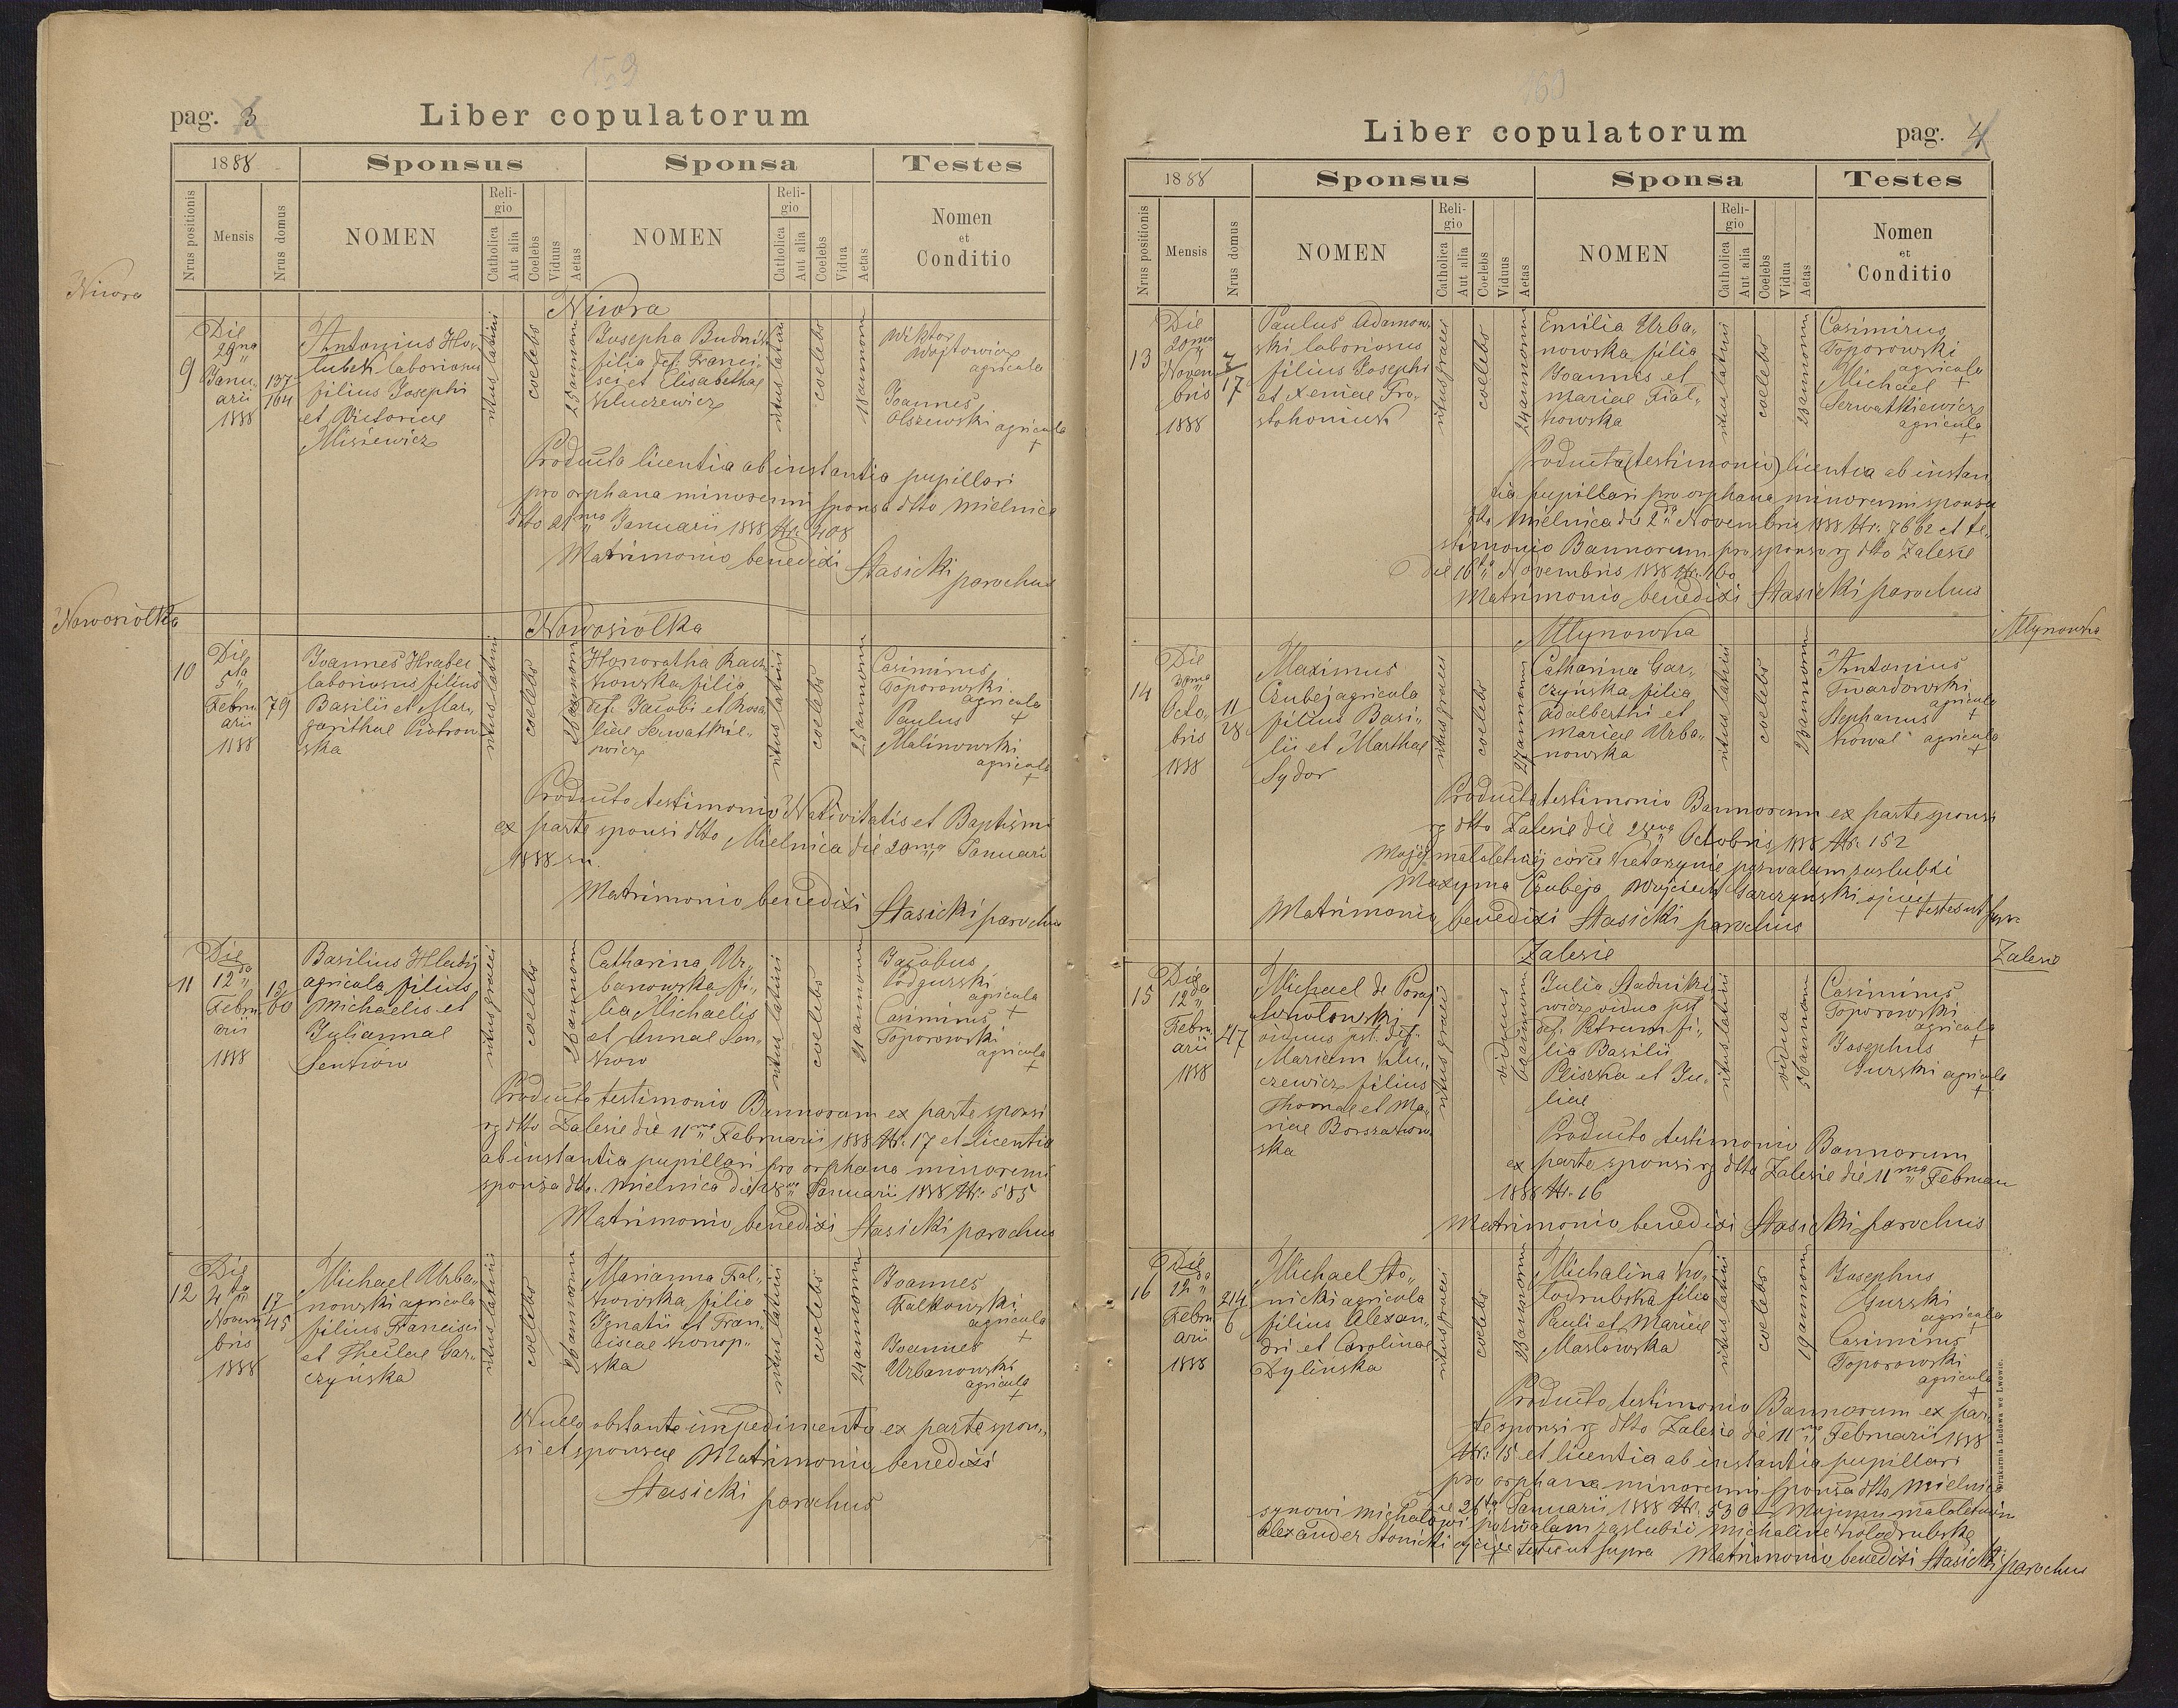 159
pag. 3
Liber copulatorum
1888
Sponsus
Sponsa
Testes
Nrus positionis
Mensis
Nrus domus
NOMEN
Religio
Catholica
Aut alia
Coelebs
Viduus
Aetas
NOMEN
Religio
Catholica
Aut alia
Coelebs
Vidua
Aetas
Nomen
et
Conditio
Niwra
Niwra
9
Die
29na
Janu-
arii
1888
137
164
Antonius Ho-
lubek laboriosus
filius Josephi
et Victoriae
Misiewicz
ritus latini
coelebs
25 annorum
Josepha Budnik
filia def. Franci-
sci et Elisabethae
Kluczewicz
ritus latini
coelebs
18 annorum
Wiktor
Wojtowicz
agricola
Joannes
Olszewski agricola
+
Producta licentia ab instantia pupillari
pro orphana minorenni sponsa dtto Mielnica
dtto 21ma Januarii 1888 Nr. 408
Matrimonio benedixi Stasicki parochus
Nowosiolka
Nowosiolka
10
Die
5ta
Febru
arii
1888
79
Joannes Hrabec
laboriosus filius
Basilii et Mar-
garithae Piotrow
ska
ritus latini
coelebs
annorum
Honoratha Racz
kowska filia
def. Jacobi et Rosa
liae Serwatkie-
wicz
ritus latini
coelebs
25 annorum
Casimirus
Toporowski
agricola
+
Paulus
Malinowski
agricola
+
Producto testimonio Nativitatis et Baptismi
ex parte sponsi dtto Mielnica die 20ma Januari
1888 sn.
Matrimonio benedixi Stasicki parochus
11
Die
12da
Febru
arii
1888
13
60
Basilius Hladij
agricola filius
Michaelis et
Juliannae
Sentiow
ritus graeci
coelebs
26 annorum
Catharina Ur-
banowska fi-
lia Michaelis
et Annae Son-
kow
ritus latini
coelebs
21 annorum
Jacobus
Podgurski
agricola
+
Casimirus
Toporowski
agricola
+
Producto testimonio Bannorum ex parte sponsi
rg dtto Zalesie die 11ma Februarii 1888 Nr. 17 et licentia
ab instantia pupillari pro orphana minorenni
sponsa dtto. Mielnica die 28va Januarii 1888 Nr. 585
Matrimonio benedixi Stasicki parochus
12
Die
4ta
Novem
bris
1888
17
45
Michael Urba-
nowski agricola
filius Francisci
et Theclae Gar-
czyńska
ritus latini
coelebs
26 annorum
Marianna Fal-
kowska filia
Ignatii et Fran-
ciscae Konop-
ska
ritus latini
coelebs
24 annorum
Joannes
Falkowski
agricola
+
Joannes
Urbanowski
agricola
+
Nullo obstante impedimento ex parte spon-
si et sponsae Matrimonio benedixi
Stasicki parochus
160
Liber copulatorum
pag. 4
1888
Sponsus
Sponsa
Testes
Nrus positionis
Mensis
Nrus domus
NOMEN
Religio
Catholica
Aut alia
Coelebs
Viduus
Aetas
NOMEN
Religio
Catholica
Aut alia
Coelebs
Vidua
Aetas
Nomen
et
Conditio
13
Die
20ma
Novem
bris
1888
7
17
Paulus Adamow-
ski laboriosus
filius Josephi
et Xeniae Tro-
stohoniuk
ritus graeci
coelebs
24 annorum
Emilia Urba-
nowska filia
Joannis et
Mariae Fial-
kowska
ritus latini
coelebs
23 annorum
Casimirus
Toporowski
agricola
+
Michael
Serwatkiewicz
agricola
+
Producta (testimonio) licentia ab instan
tia pupillari pro orphana minorenni sponsa
dtto Mielnica die 2da Novembris 1888 Nr. 7662 et te-
stimonio Bannorum pro sponso rg dtto Zalesie
die 16 Novembris 1888 Nr. 160
Matrimonio benedixi Stasicki parochus
Mlynowka
Mlynowka
14
Die
Octo-
bris
1888
11
28
Maximus
Czubej agricola
filius Basi-
lii et Marthae
Sydor
ritus graeci
coelebs
27 annorum
Catharina Gar-
czyńska filia
Adalberthi et
Mariae Urba-
nowska
ritus latini
coelebs
23 annorum
Antonius
Twardowski
agricola
+
Stephanus
Kowal agricola
+
Producto testimonio Bannorum ex parte sponsi
rg dtto Zalesie die 28va Octobris 1888 Nr. 152
Mojej małoletniej córce Katarzynie pozwalam zaslubić
Maxyma Czubeja Wojciech Garczyński ojciec
+ testes ut supra
Matrimonio benedixi Stasicki parochus
Zalesie
Zalesie
15
Die
12da
Febru-
arii
1888
47
Michael de Poraj
viduus pt. def.
Mariam Klu-
czewicz filius
Thomae et Ma-
riae Borszczow-
ska
ritus graeci
viduus
60 annorum
Julia Stadnikie
wicz vidua pt.
def. Petrum fi-
lia Basilii
Pliszka et Ju-
liae
ritus latini
vidua
50 annorum
Casimirus
Toporowski
agricola
+
Josephus
Gurski agricola
+
Producto testimonio Bannorum
ex parte sponsi rg dtto Zalesie die 11ma Februari
1888 Nr. 16
Matrimonio benedixi Stasicki parochus
16
Die
12da
Febru
arii
1888
214
6
Michael Sto-
nicki agricola
filius Alexan-
dri et Carolinae
Dylińska
ritus graeci
coelebs
23 annorum
Michalina Ko-
lodrubska filia
Pauli et Mariae
Maslowska
ritus latini
coelebs
19 annorum
Josephus
Gurski
agricola
+
Casimirus
Toporowski
agricola
+
Producto testimonio Bannorum ex par
te sponsi rg dtto Zalesie die 11ma Februarii 1888
Nr. 15 et licentia ab instantia pupillari
pro orphana minorenni sponsa dtto Mielnica
die 26ta Januarii 1888 Nr. 530 - Mojemu małoletniem
synowi Michałowi pozwalam zaslubić Michalinę Kolodrubskę
Alexander Stonicki ojciec testes ut supra Matrimonio benedixi Stasicki parochus
Drukarnia Ludowa we Lwowie.